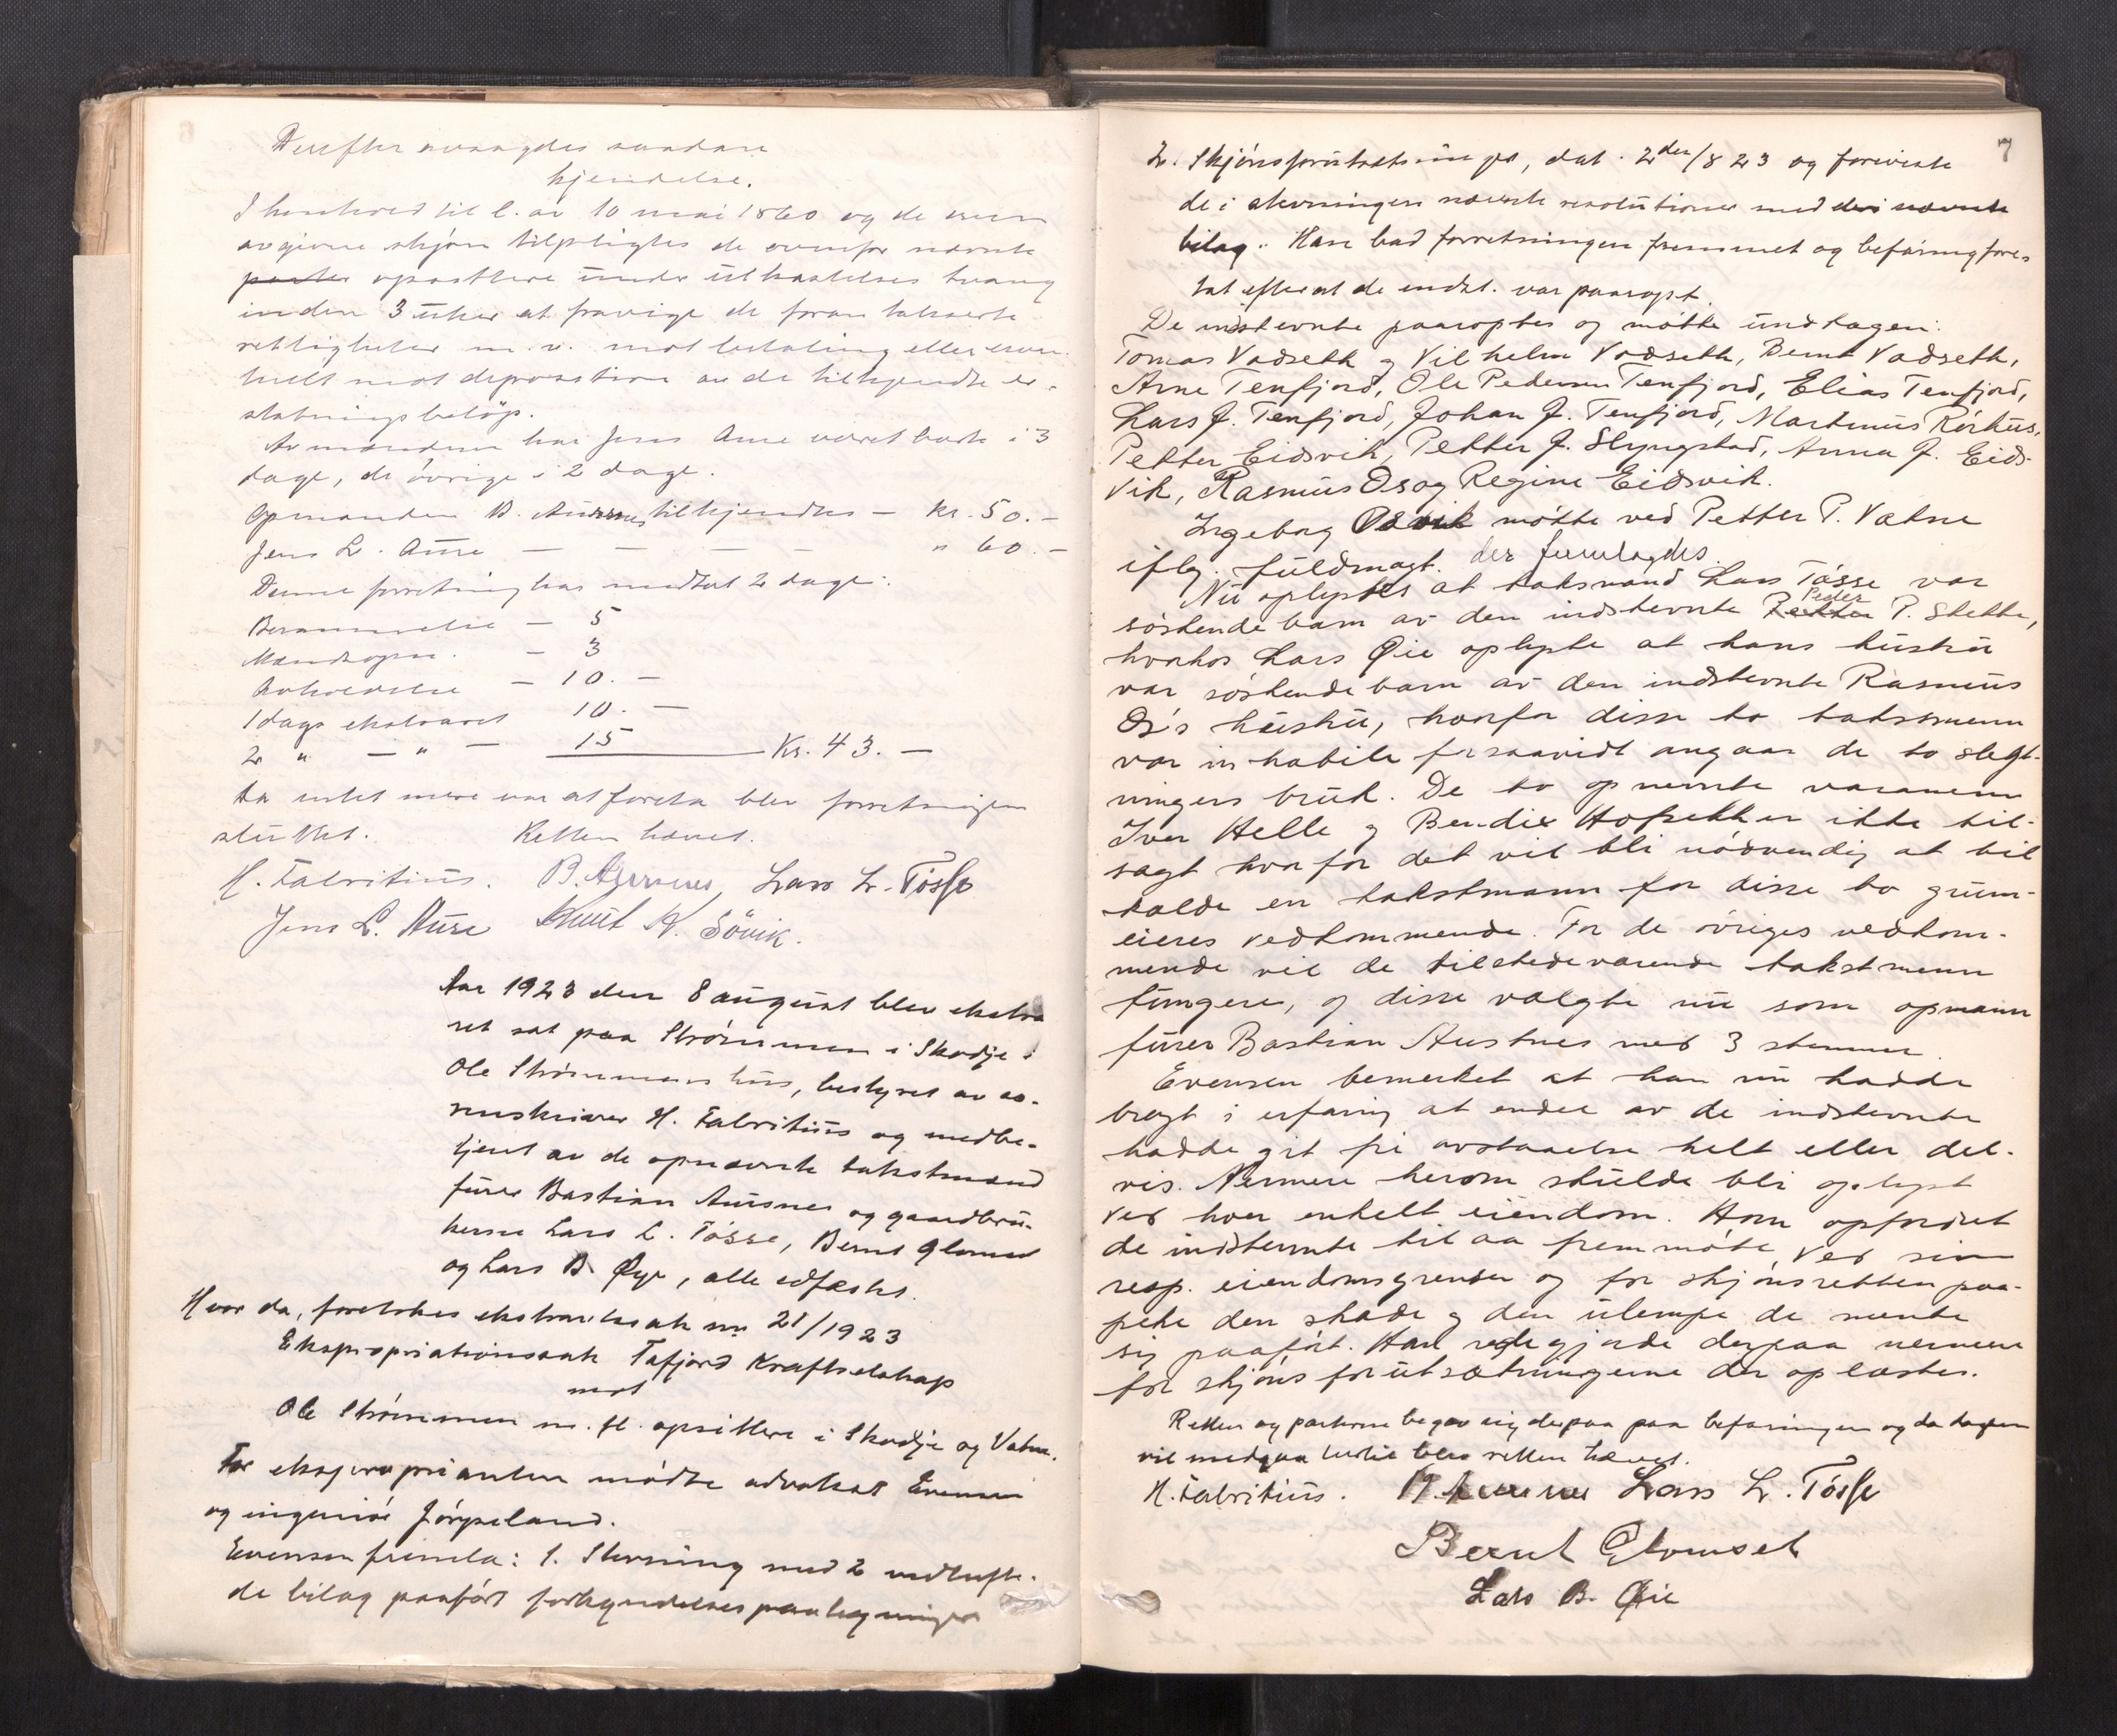 Derefter avsagdes saadan
kjendelse.
I henhold til l. av 10 mai 1860 og de ovenfor
avgivne skjøn tilpligtes de ovenfor nævnte
parter opsittere under utkastelses tvang
inden 3 uker at fravige de foran takserte
rettigheter m. v. mot betaling eller even-
tuelt mot deposition av de tilkjendte er-
statningsbeløp.
Av mændene har Jens Aure været borte i 3
dage, de øvrige i 2 dage.
Opmanden B. Aursnes tilkjendtes - kr. 50.-
Jens L. Aure — — — — " 60.-
Denne forretning har medtat 2 dage:
Berammelse - 5
Mændsopn. - 3
Avholdelse - 10.-
1 dags ekstraret 10.-
2 " — " — 15 Kr. 43.—
Da intet mere var at foreta blev forretningen
sluttet. Retten hævet.
H. Fabritius. B. Aursnes Lars L. Tøsse
Jens L. Aure Knut K. Søvik.
Aar 1923 den 8 august blev ekstra
ret sat paa Strømmen i Skodje i
Ole Strømmens hus, bestyret av so-
renskriver H. Fabritius og medbe-
tjent av de opnævnte takstmænd
furer Bastian Aursnes og gaardbru-
kerne Lars L. Tøsse, Bernt Glomset
og Lars B. Øye, alle edfæstet.
Hvor da, foretokes ekstraretssak nr. 21/1923
Ekspropriationssak Tafjord Kraftselskap
mot
Ole Strømmen m. fl. opsittere i Skodje og Vatne.
For ekspropriantene mødte advokat Evensen
og ingeniør Jørpeland.
Evensen fremla: 1. Stevning med 2 vedhefte-
de bilag paaført forkyndelsespaategninger
7
2. Skjønsforutsætninger, dat. 2den/8 23 og foreviste
de i stevningen nævnte resolutioner med de i nævnte
bilag. Han bad forretningen fremmet og befaring fore-
tat efterat de indst. var paaropt.
De indstevnte paaroptes og møtte undtagen:
Tomas Vadseth og Vilhelm Vadseth, Bernt Vadseth,
Arne Tenfjord, Ole Pedersen Tenfjord, Elias Tenfjord,
Lars J. Tenfjord, Johan J. Tenfjord, Martinus Rørhus,
Petter Eidsvik, Petter J. Slyngstad, Anna J. Eids-
vik, Rasmus Os og Regine Eidsvik.
Ingeborg møtte ved Petter P. Vatne
iflg. fuldmagt. der fremlagdes
Nu oplystes at taksmand Lars Tøsse var
søskendebarn av den indstevnte Petter Peder P. Stette,
hvorhos Lars Øie oplyste at hans hustru
var søskendebarn av den indstevnte Rasmus
Os's hustru, hvorfor disse to takstmenn
var inhabile forsaavidt angaar de to slegt-
ningers bruk. De to opnevnte varamenn
Iver Helle og Bendix Hofseth er ikke til-
sagt hvorfor det vil bli nødvendig at til-
kalde en takstmann for disse to grunn-
eieres vedkommende. For de øvriges vedkom-
mende vil de tilstedeværende takstmenn
fungere, og disse valgte nu som opmann
furer Bastian Austnes med 3 stemmer.
Evensen bemerket at han nu hadde
bragt i erfaring at endel av de indstevnte
hadde git fri avstaaelse helt eller del-
vis. Nærmere herom skulde bli oplyst
ved hver enkelt eiendom. Han opfordret
de indstevnte til aa fremmøte ved sin
resp. eiendomsgrenser og for skjønsretten paa-
peke den skade og den ulempe de mente
sig paaført. Han redegjorde derpaa nærmere
for skjønsforutsætningerne der oplæstes.
Retten og parterne begav sig derpaa paa befaringen og da dagen
vil medgaa hertil blev retten hævet.
H. Fabritius. B. Aursnes Lars L. Tøsse
Bernt Glomset
Lars B. Øie